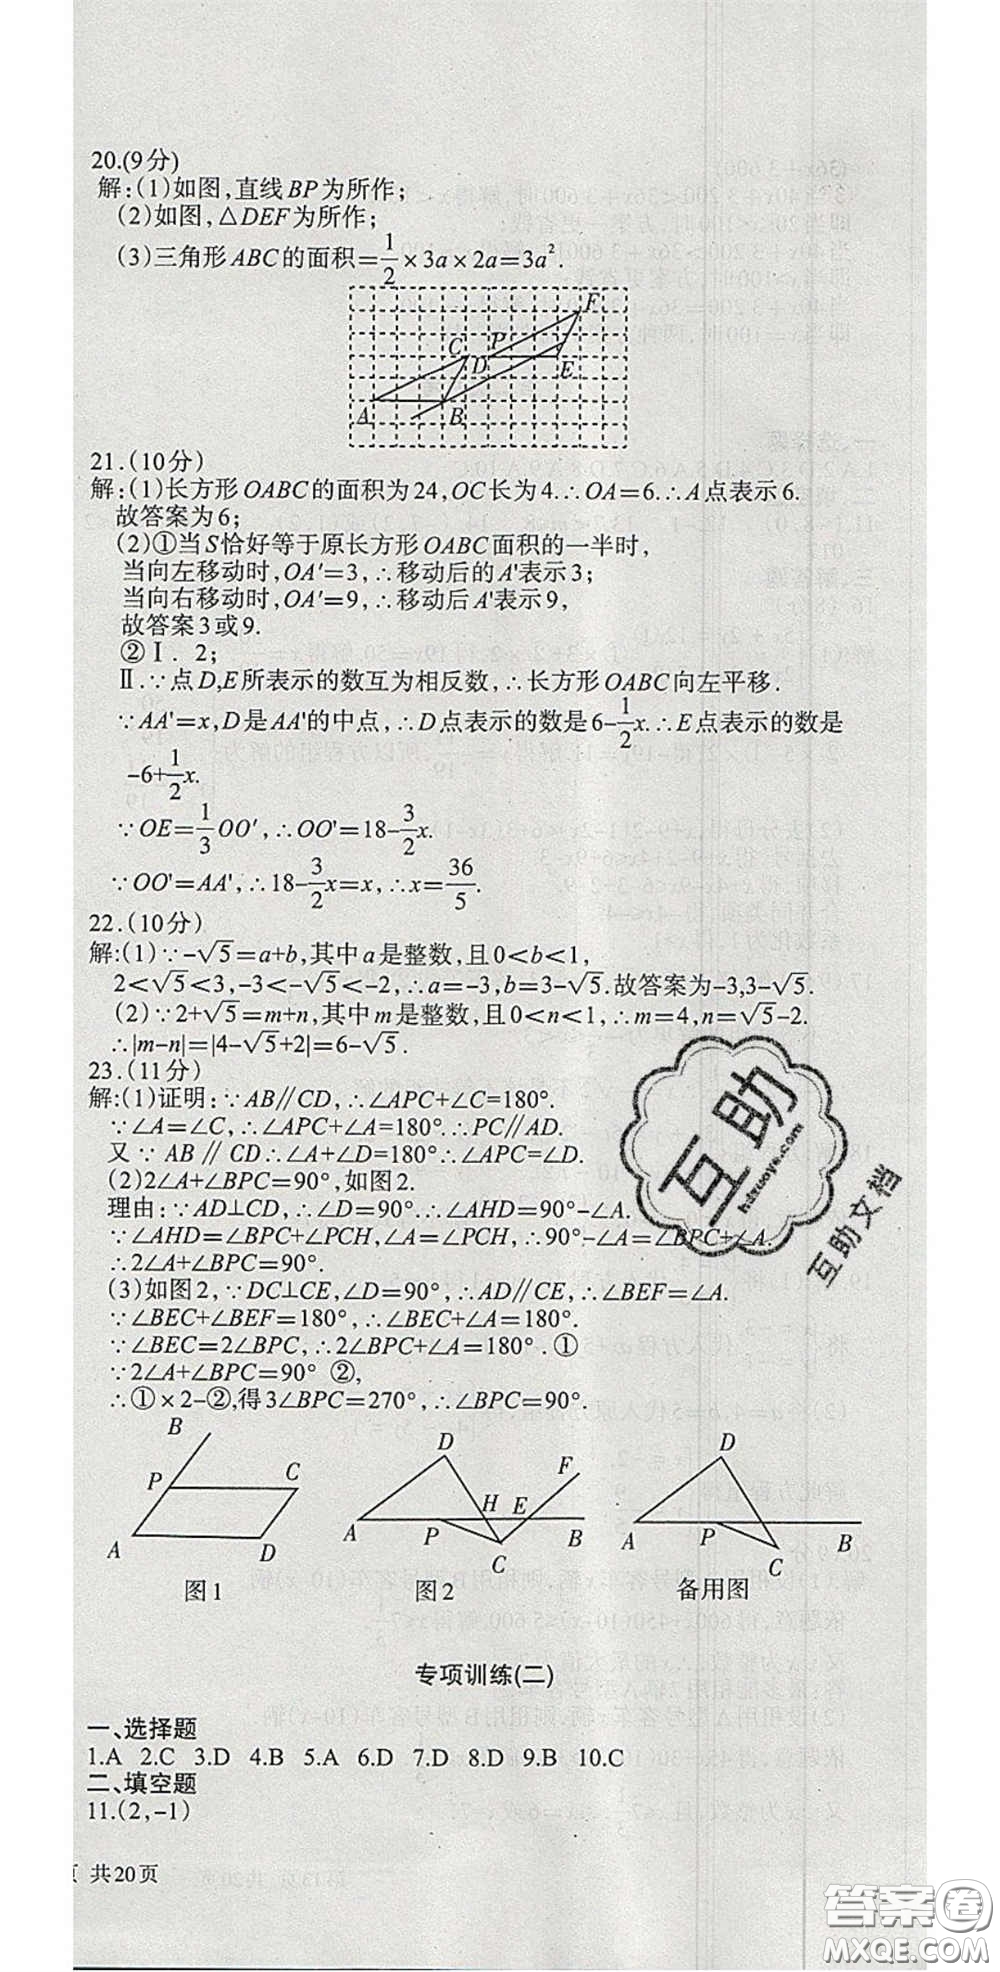 20.(9分)
解:(1)如图,直线BP为所作;
(2)如图,△DEF为所作;
(3)三角形ABC的面积=1/2×3a×2a=3a².
F
C P
D E
A B
21.(10分)
解:(1)长方形OABC的面积为24,OC长为4.∴OA=6.∴A点表示6.
故答案为6;
(2)①当S恰好等于原长方形OABC面积的一半时,
当向左移动时,OA'=3,∴移动后的A'表示3;
当向右移动时,OA'=9,∴移动后A'表示9,
故答案3或9.
②Ⅰ. 2;
Ⅱ.∵点D,E所表示的数互为相反数,∴长方形OABC向左平移.
∵AA'=x,D是AA'的中点,∴D点表示的数是6-1/2x.∴E点表示的数是
-6+1/2x.
∵OE=1/3OO',∴OO'=18-3/2x.
∵OO'=AA',∴18-3/2x=x,∴x=36/5.
22.(10分)
解:(1)∵-√5=a+b,其中a是整数,且0<b<1,
2<√5<3,-3<-√5<-2,∴a=-3,b=3-√5.故答案为-3,3-√5.
(2)∵2+√5=m+n,其中m是整数,且0<n<1,∴m=4,n=√5-2.
∴|m-n|=|4-√5+2|=6-√5.
23.(11分)
解:(1)证明:∵AB∥CD,∴∠APC+∠C=180°.
∵∠A=∠C,∴∠APC+∠A=180°.∴PC∥AD.
又∵AB∥CD∴∠A+∠D=180°∴∠APC=∠D.
(2)2∠A+∠BPC=90°,如图2.
理由:∵AD⊥CD,∴∠D=90°.∴∠AHD=90°-∠A.
∵∠AHD=∠BPC+∠PCH,∠A=∠PCH,∴90°-∠A=∠BPC+∠A.
∴2∠A+∠BPC=90°.
(3)如图2,∵DC⊥CE,∠D=90°,∴AD∥CE,∴∠BEF=∠A.
∵∠BEC+∠BEF=180°,∴∠BEC+∠A=180°.
∵∠BEC=2∠BPC,∴2∠BPC+∠A=180°.①
∵2∠A+∠BPC=90° ②,
∴①×2-②,得3∠BPC=270°,∴∠BPC=90°.
B P C A D
图1
D F H E A P B C
图2
D A P B C
备用图
专项训练(二)
一、选择题
1.A 2.C 3.D 4.B 5.A 6.D 7.D 8.D 9.B 10.C
二、填空题
11.(2,-1)
页 共20页
互助
hdzuoye.com
互助文档
答案圈
MXQE.COM